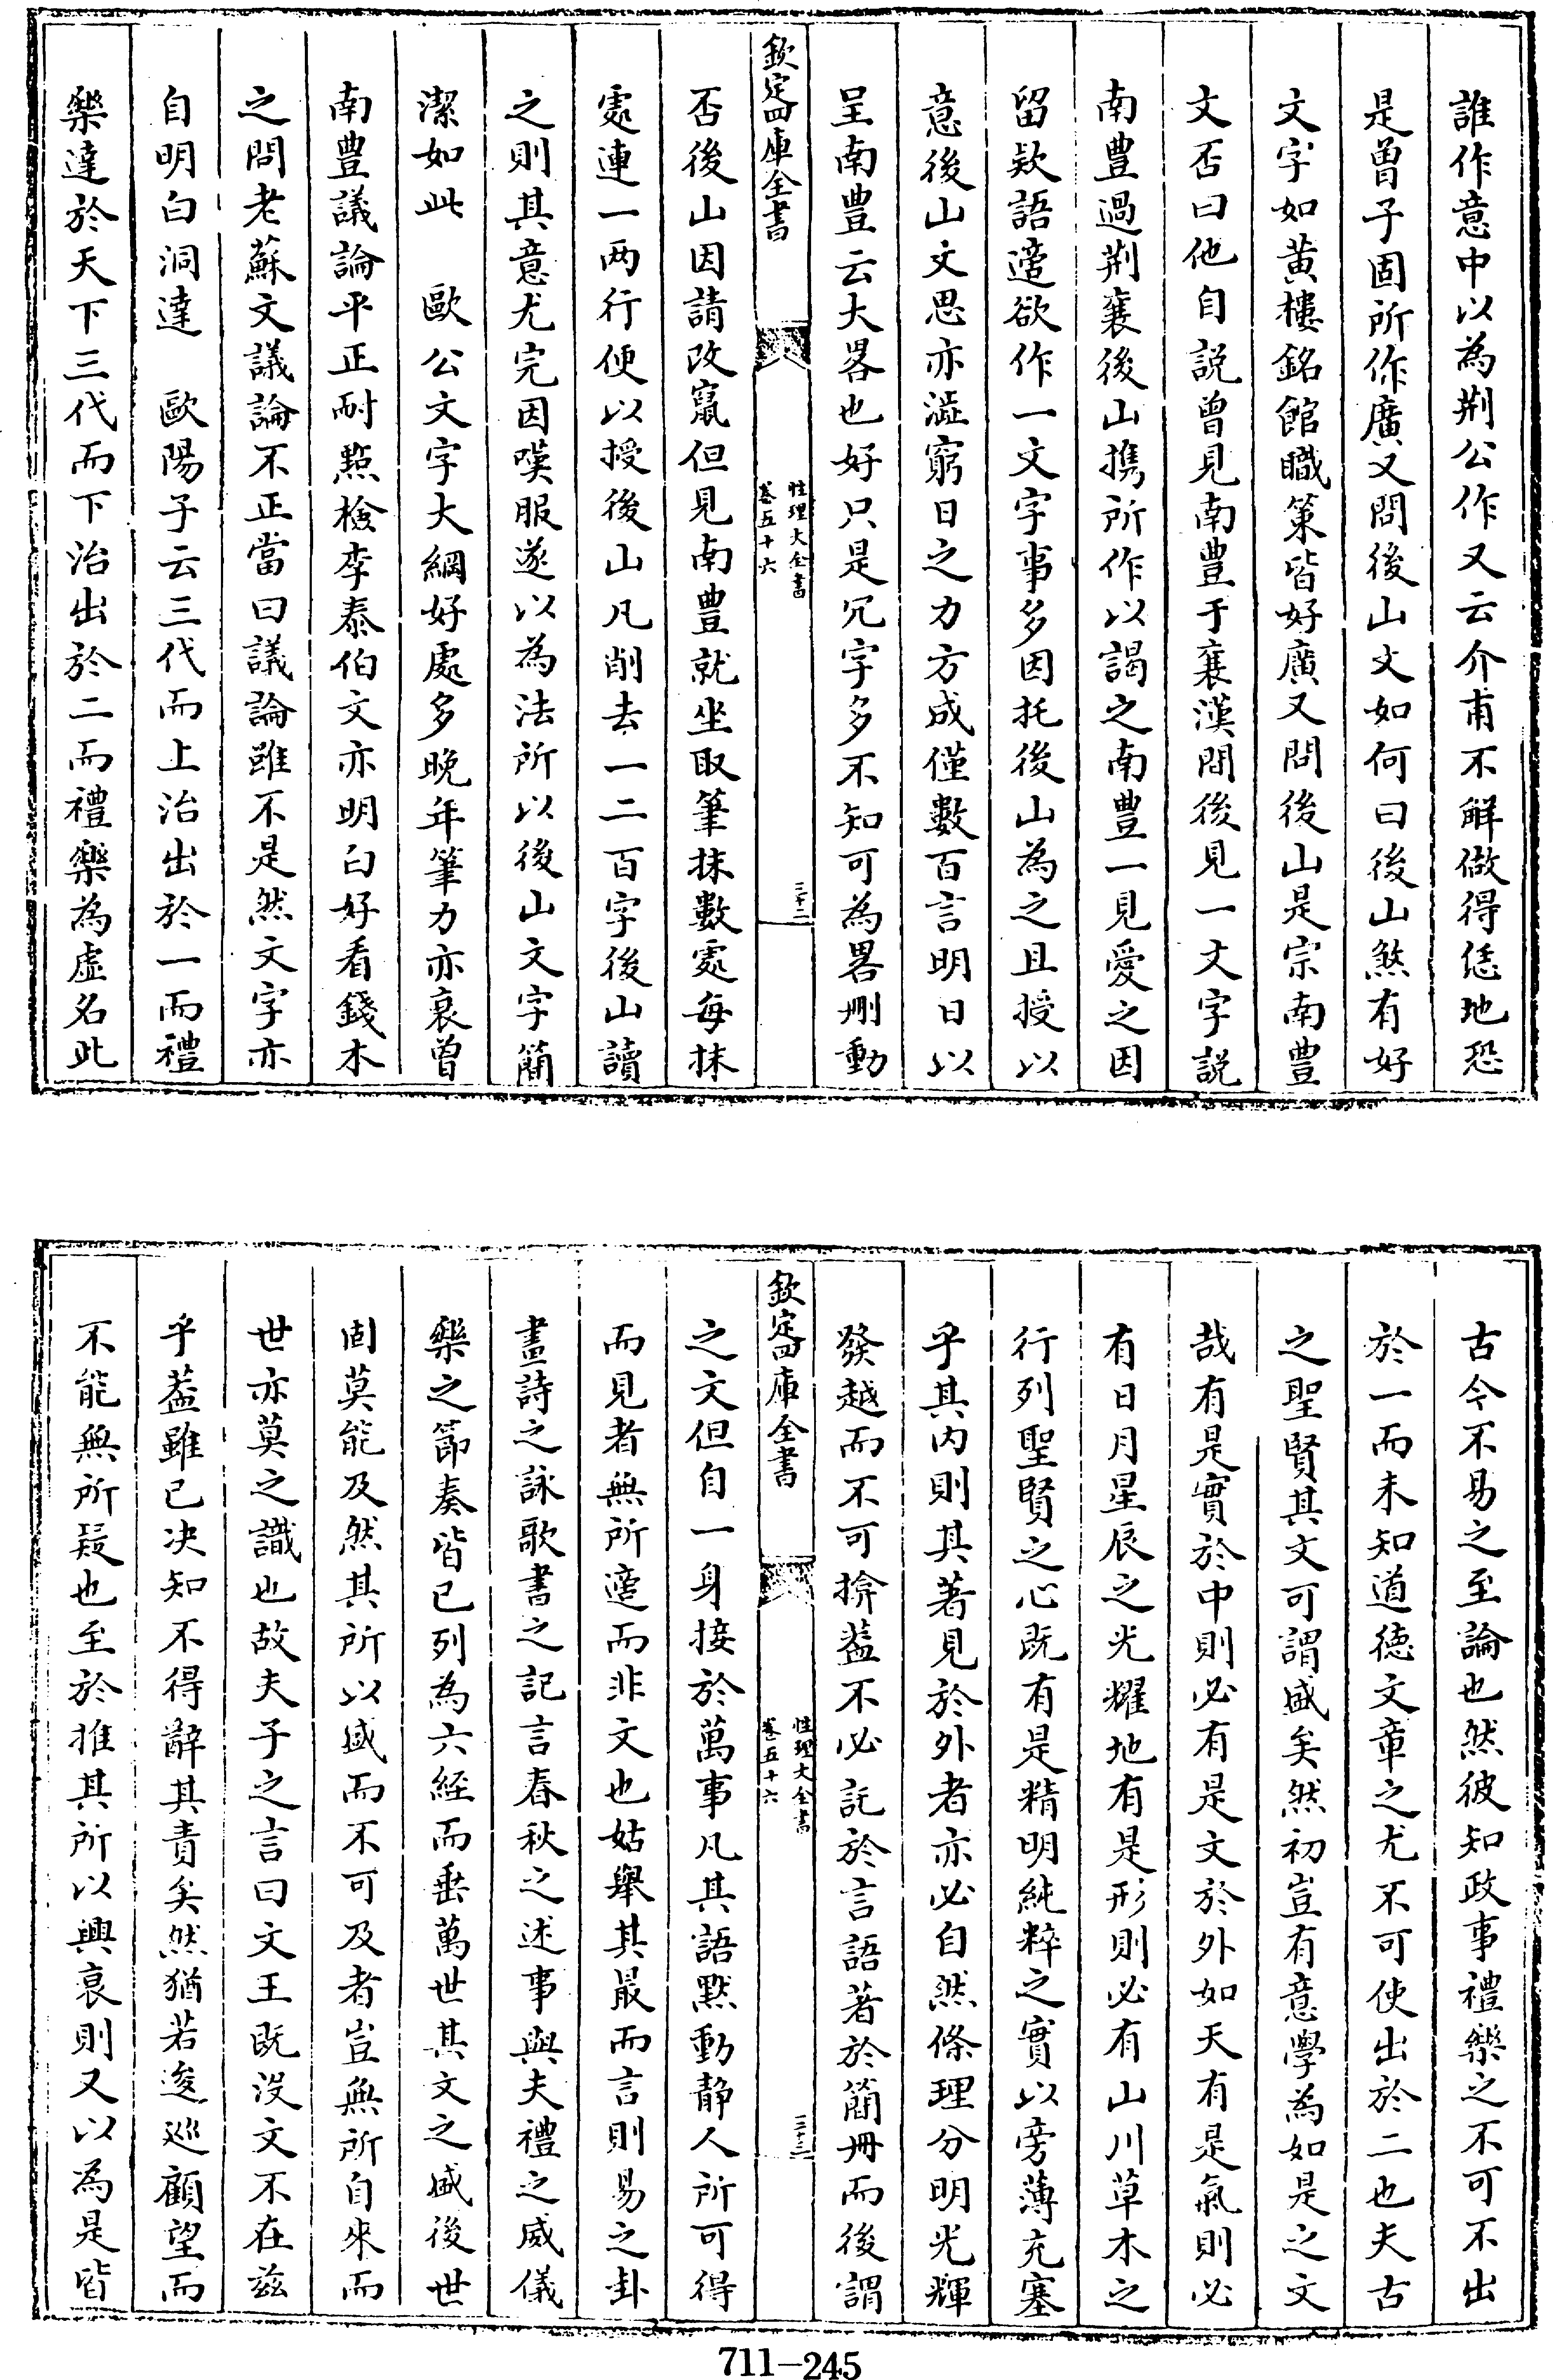 誰作意中以為荆公作又云介甫不解做得恁地恐
是曾子固所作廣又問後山文如何曰後山煞有好
文字如黄樓銘館職策皆好廣又問後山是宗南豊
文否曰他自説曾見南豊于襄漢間後見一文字説
南豊過荆襄後山携所作以謁之南豊一見愛之因
留欵語適欲作一文字事多因托後山為之且授以
意後山文思亦澁窮日之力方成僅數百言明日以
呈南豊云大畧也好只是冗字多不知可為畧刪動
欽定四庫全書
性理大全書
卷五十六
三十二
否後山因請改竄但見南豊就坐取筆抹數處每抹
處連一两行便以授後山凡削去一二百字後山讀
之則其意尤完因嘆服遂以為法所以後山文字簡
潔如此 歐公文字大綱好處多晚年筆力亦衰曾
南豊議論平正耐㸃檢李泰伯文亦明白好看錢木
之問老蘇文議論不正當曰議論雖不是然文字亦
自明白洞達 歐陽子云三代而上治出於一而禮
樂達於天下三代而下治出於二而禮樂為虚名此
古今不易之至論也然彼知政事禮樂之不可不出
於一而未知道德文章之尤不可使出於二也夫古
之聖賢其文可謂盛矣然初豈有意學為如是之文
哉有是實於中則必有是文於外如天有是氣則必
有日月星辰之光耀地有是形則必有山川草木之
行列聖賢之心既有是精明純粹之實以旁薄充塞
乎其内則其著見於外者亦必自然條理分明光輝
發越而不可揜葢不必託於言語著於簡冊而後謂
欽定四庫全書
性理大全書
卷五十六
三十三
之文但自一身接於萬事凡其語黙動静人所可得
而見者無所適而非文也姑舉其最而言則易之卦
畫詩之詠歌書之記言春秋之述事與夫禮之威儀
樂之節奏皆已列為六經而垂萬世其文之盛後世
固莫能及然其所以盛而不可及者豈無所自來而
世亦莫之識也故夫子之言曰文王既没文不在兹
乎葢雖已决知不得辭其責矣然猶若逡廵顧望而
不能無所疑也至於推其所以興衰則又以為是皆
711-245